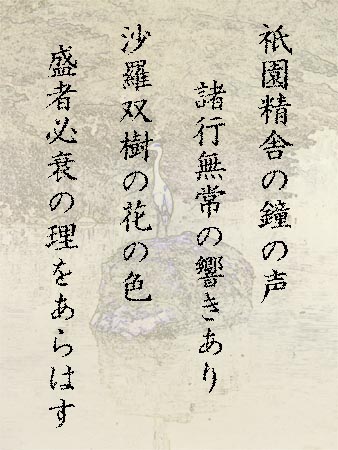 祇園精舎の鐘の声
諸行無常の響きあり
沙羅双樹の花の色
盛者必衰の理をあらはす